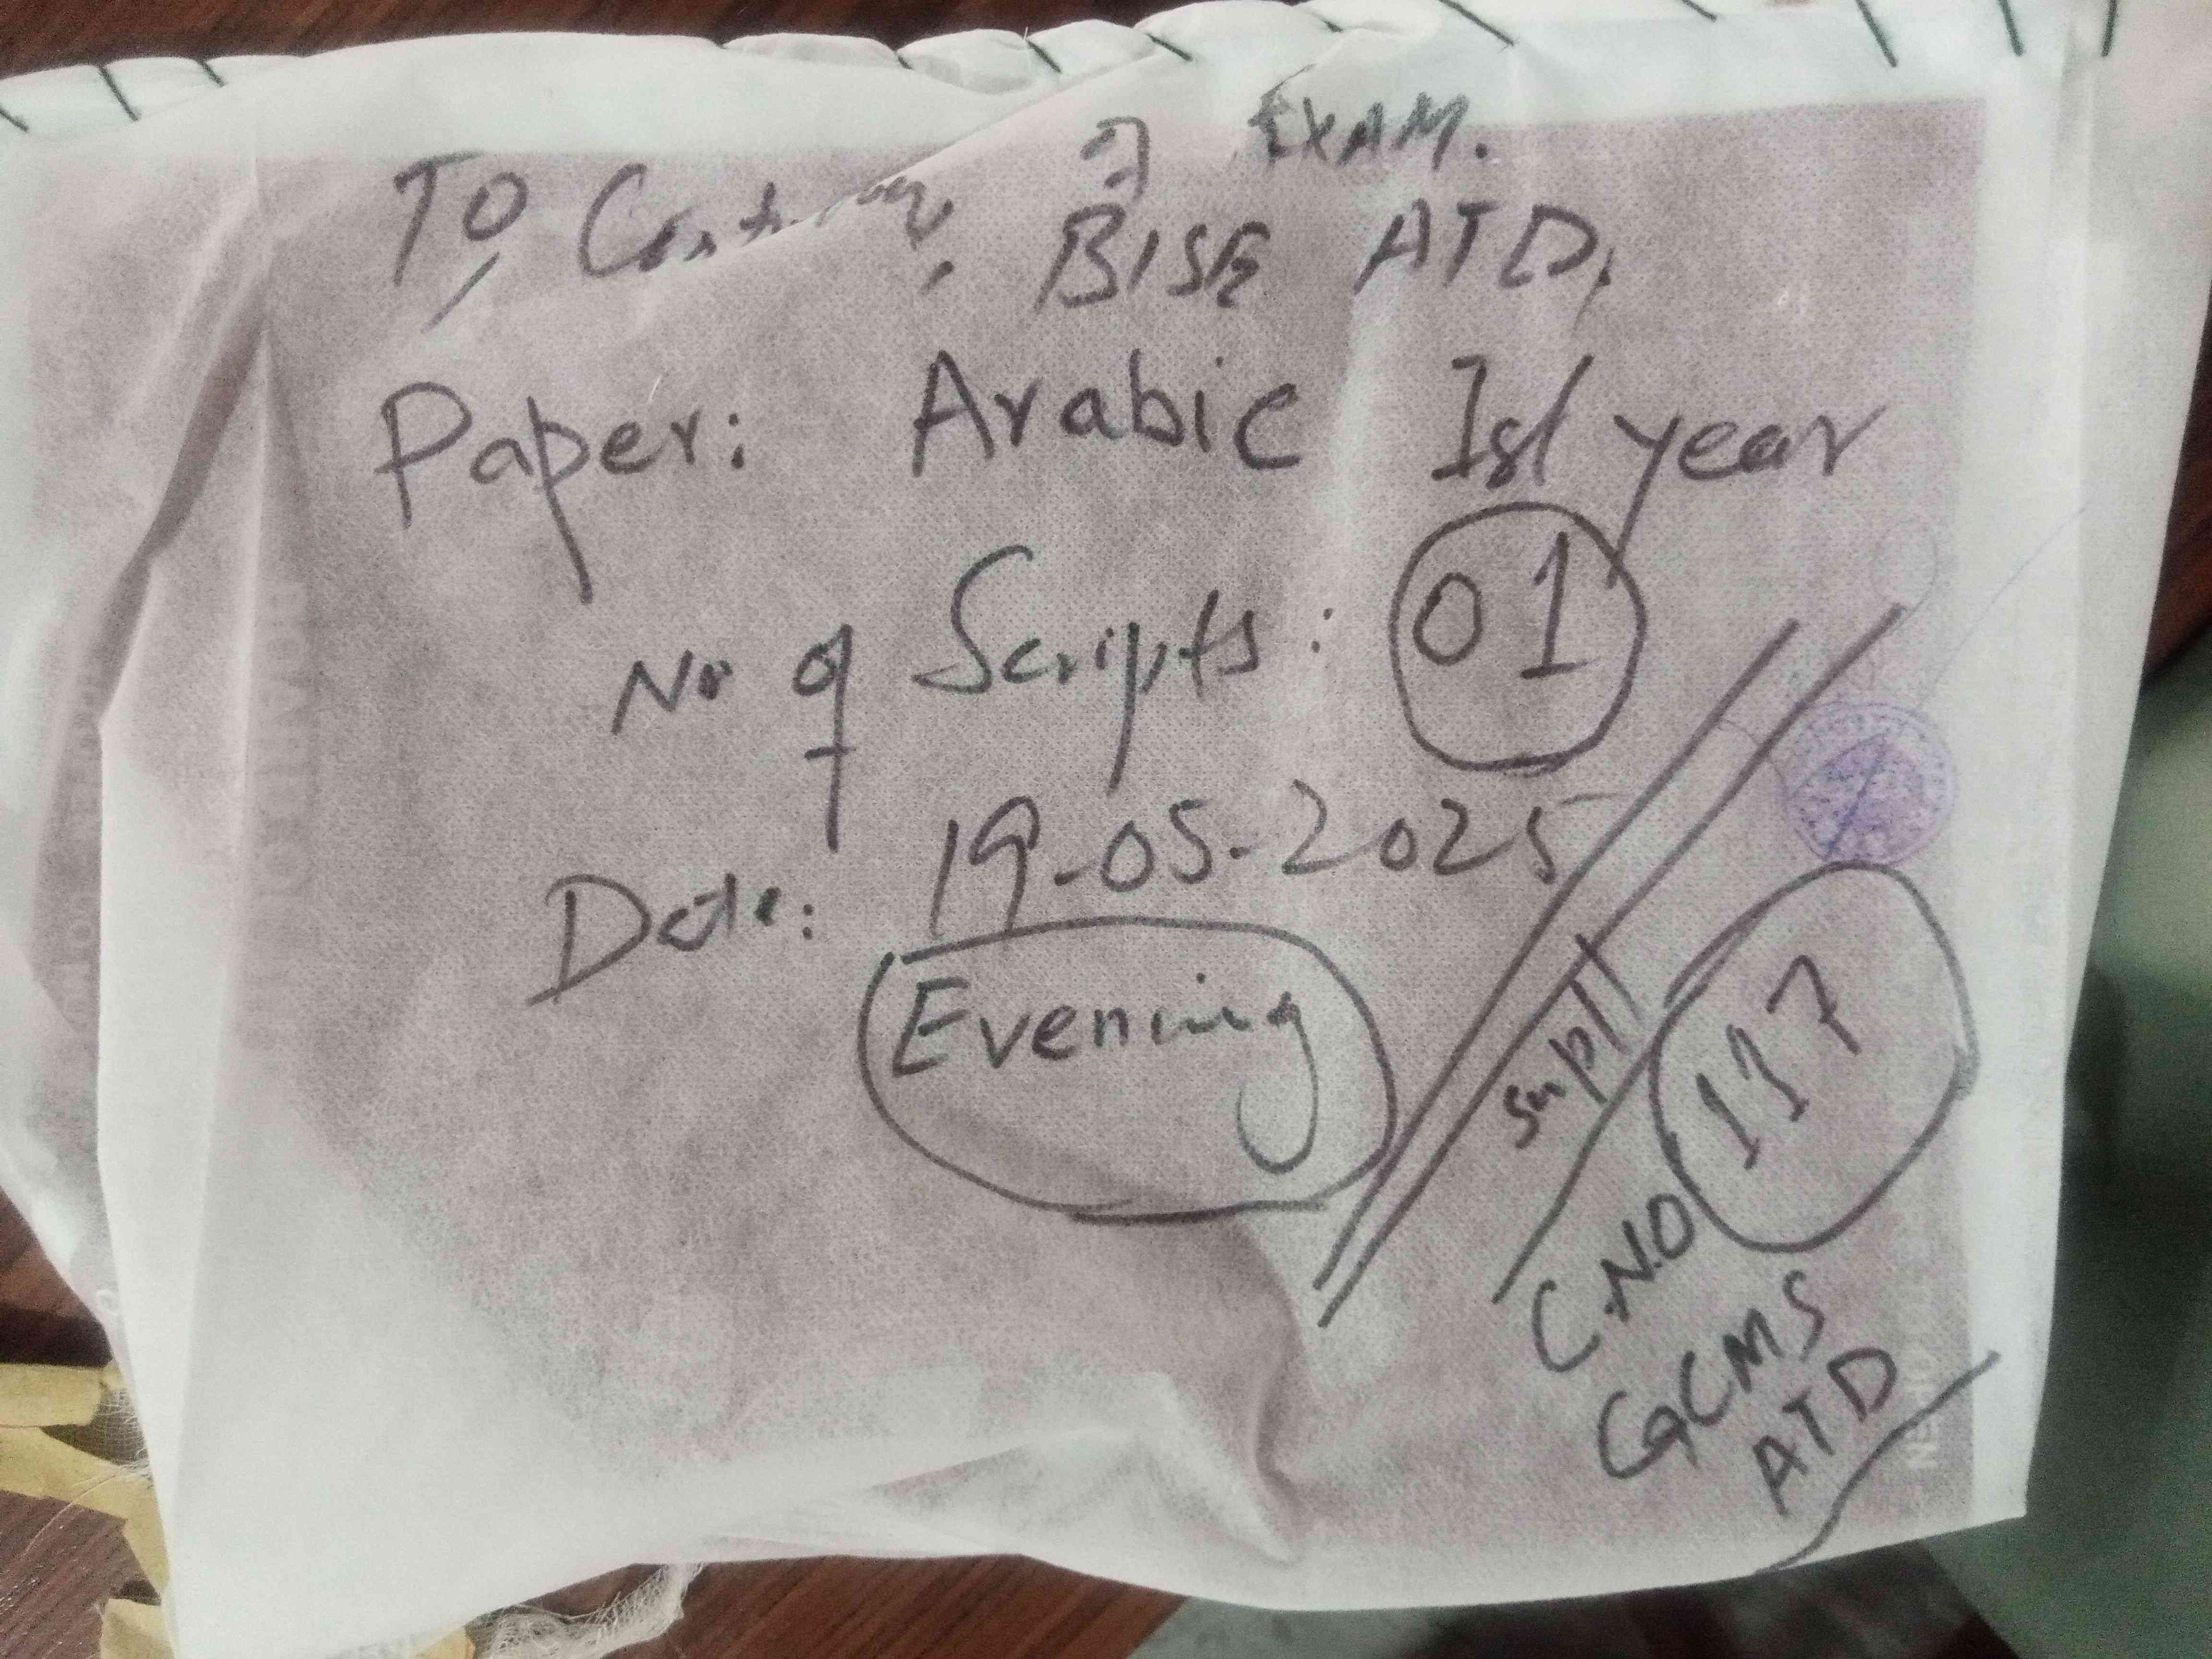 To, of EXAM.
BISE ATD.
Paper: Arabic Ist year
No of Scripts: 01
Date: 19-05-2025
Evening
Supt
C.N.O 117
GCMS
ATD